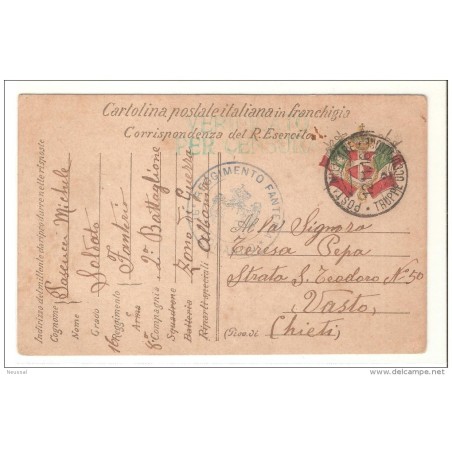 Cartolina postale italiana in franchigia
Corrispondenza del R. Esercito
VERI
PER CENSURA
REGGIMENTO FANT
POSTA
TRUPPE
Indirizzo del mittente da riprodurre nelle risposte
Cognome
Nome Michele
Grado Soldato
Reggimento
Arma Fanteria
8ª Compagnia 2º Battaglione
Squadrone
Batteria Zona di Guerra
Riparti speciali Albania
Alla Signora
Teresa Pepa
Strada S. Teodoro Nº 50
Vasto
(Prov. di Chieti)
Neusnal
delcampe.net